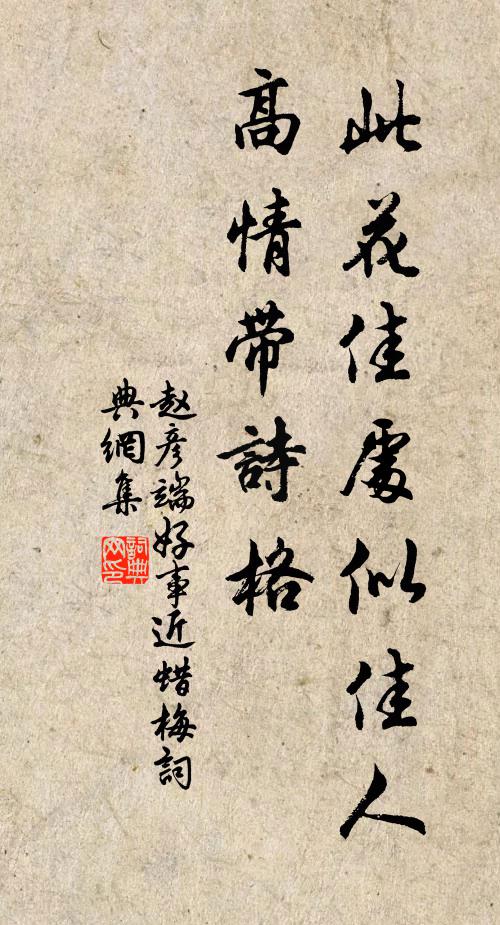 此花佳處似佳人
高情帶詩格
赵彦端好事近蜡梅詞
典網集
詞典
网印